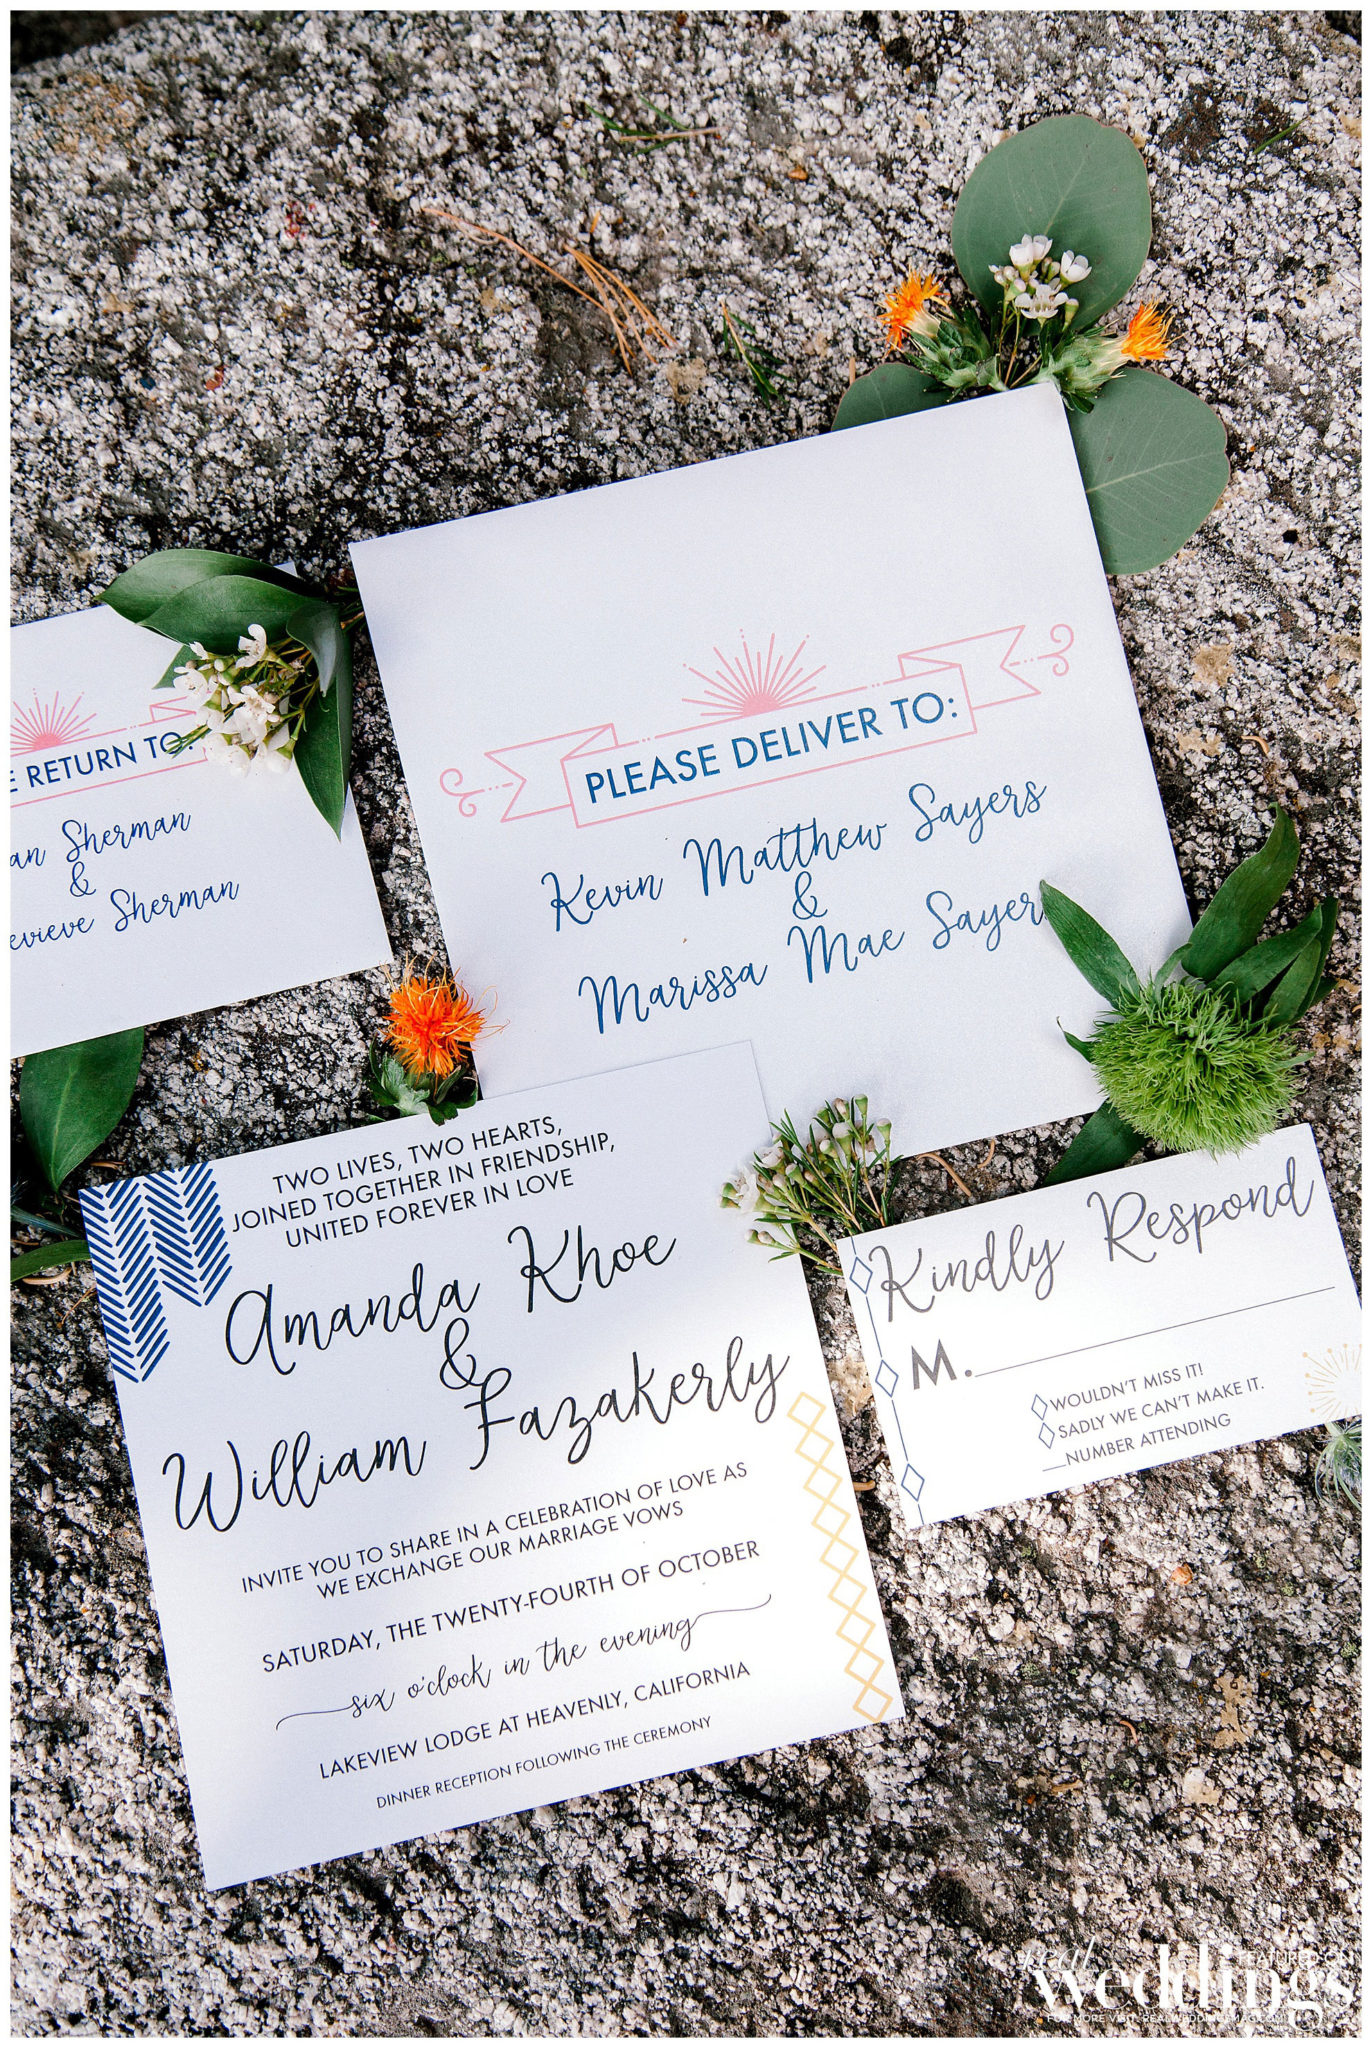 PLEASE DELIVER TO:
Kevin Matthew Sayers
&
Marissa Mae Sayer
E RETURN TO:
an Sherman
&
evieve Sherman
TWO LIVES, TWO HEARTS,
JOINED TOGETHER IN FRIENDSHIP,
UNITED FOREVER IN LOVE
Amanda Khoe
&
William Fazakerly
INVITE YOU TO SHARE IN A CELEBRATION OF LOVE AS
WE EXCHANGE OUR MARRIAGE VOWS
SATURDAY, THE TWENTY-FOURTH OF OCTOBER
six o'clock in the evening
LAKEVIEW LODGE AT HEAVENLY, CALIFORNIA
DINNER RECEPTION FOLLOWING THE CEREMONY
Kindly Respond
M.
WOULDN'T MISS IT!
SADLY WE CAN'T MAKE IT.
__NUMBER ATTENDING
FEATURED ON
real
weddings
FOR MORE VISIT: REALWEDDINGSMAG.COM